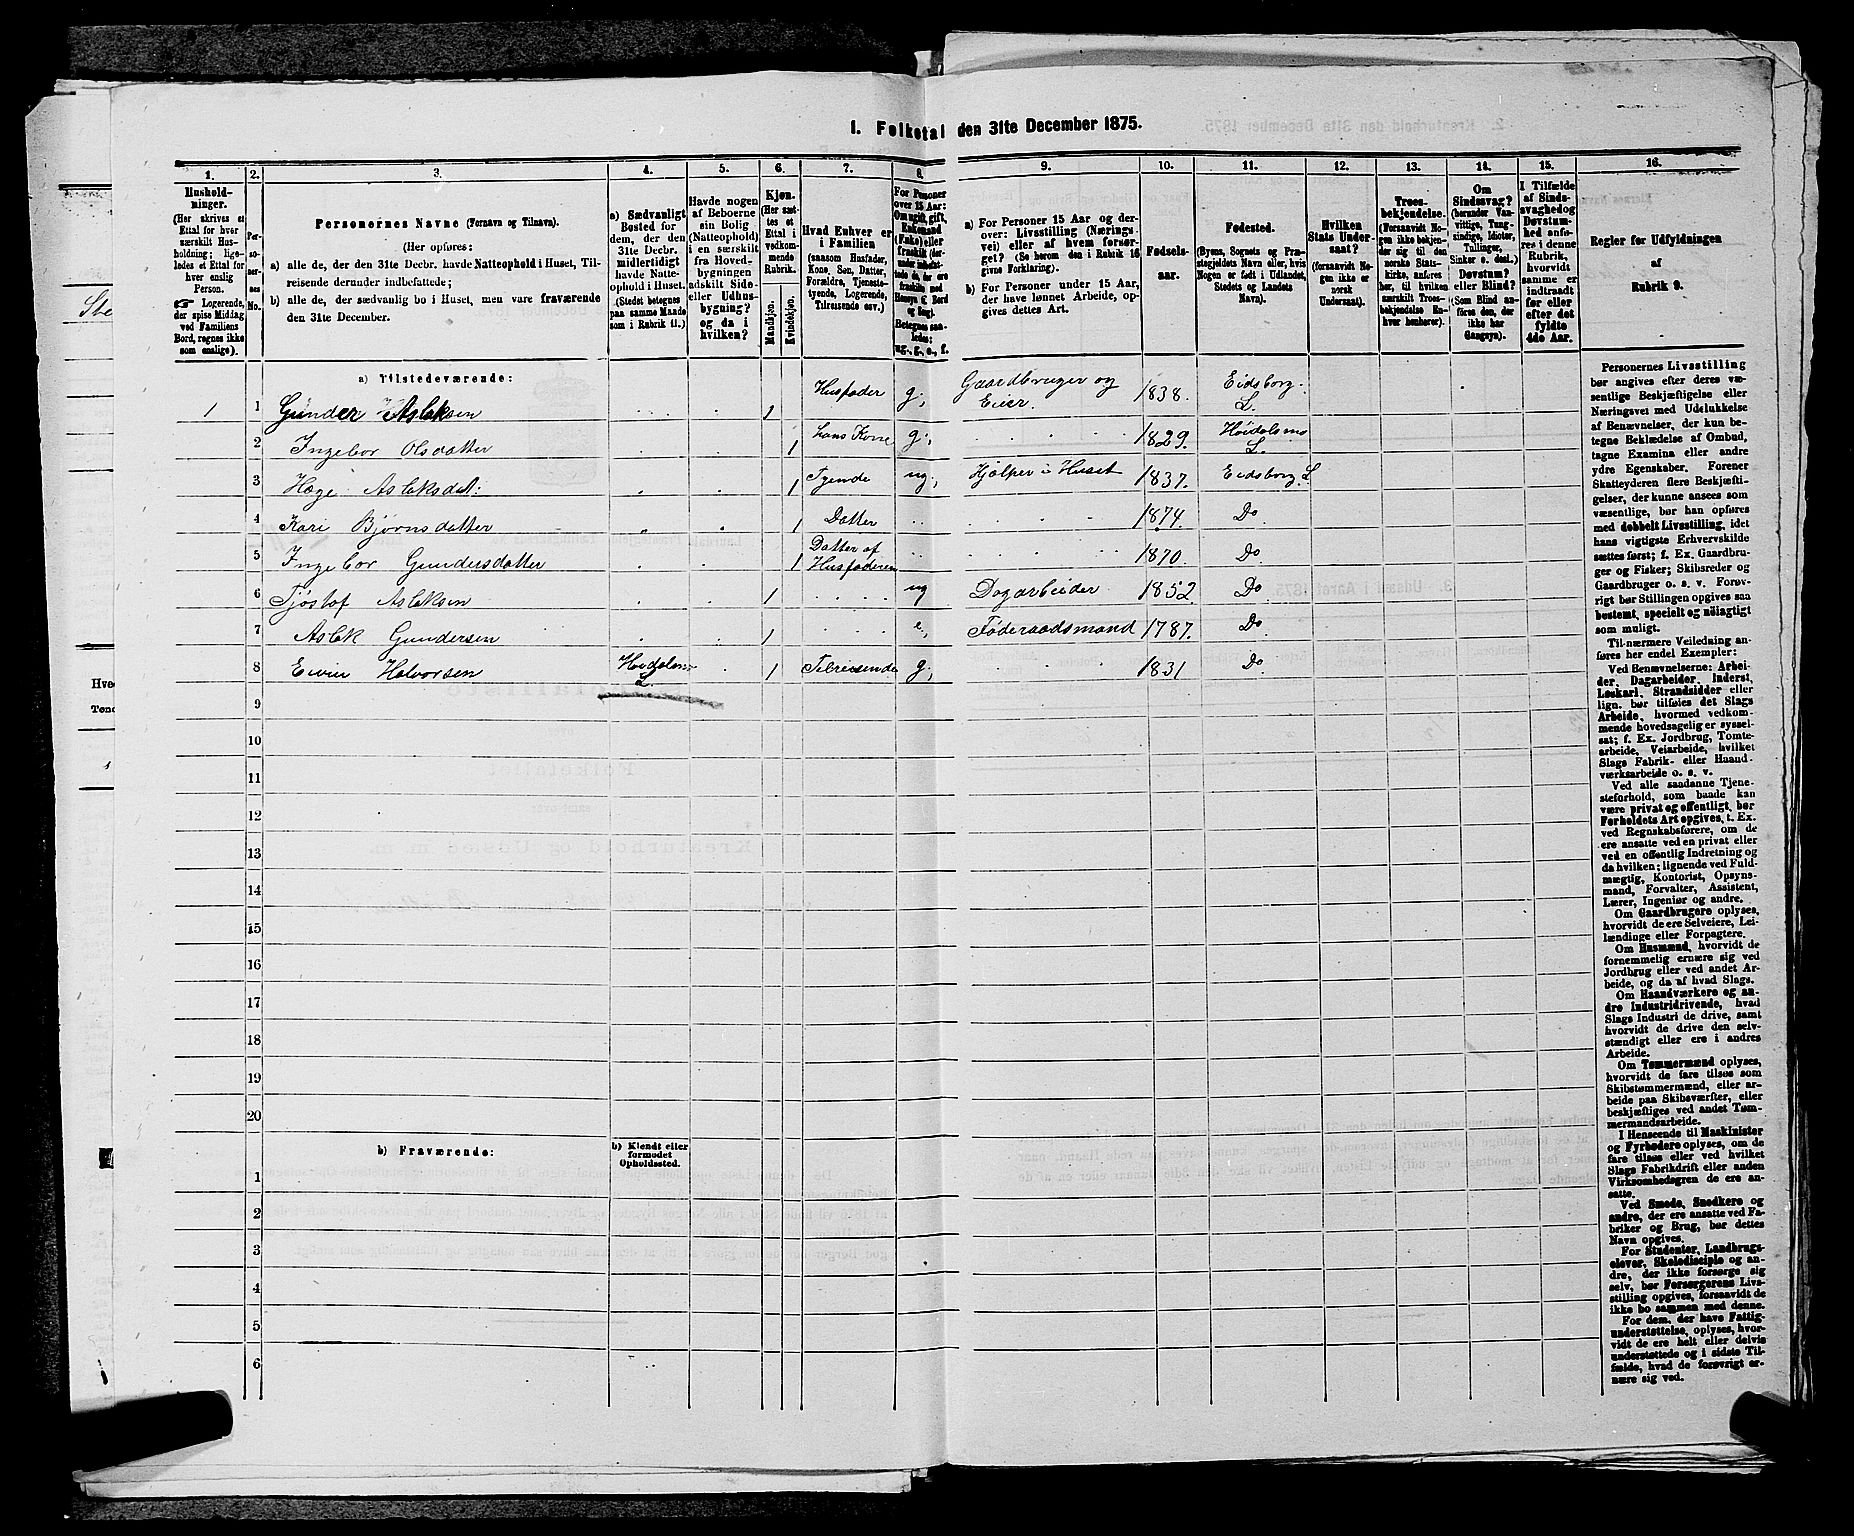 I. Folketal den 31te December 1875.
1. 2. 3. 4. 5. 6. 7. 8. 9. 10. 11. 12. 13. 14. 15. 16.
Hushold-
ninger.
(Her skrives et
Ettal for hver
særskilt Hus-
holdning; lige-
ledes et Ettal for
hver enslig
Person.
☞ Logerende,
der spise Middag
ved Familiens
Bord, regnes ikke
som enslige).
Per-
so-
ner-
nes
No.
Personernes Navne (Fornavn og Tilnavn).
(Her opføres:
a) alle de, der den 31te Decbr. havde Natteophold i Huset, Til-
reisende derunder indbefattede;
b) alle de, der sædvanlig bo i Huset, men vare fraværende
den 31te December.
a) Sædvanligt
Bosted for
dem, der den
31te Decbr.
midlertidigt
havde Natte-
ophold i Huset.
(Stedet betegnes
paa samme Maade
som i Rubrik 11.)
Havde nogen
af Beboerne
sin Bolig
(Natteophold)
i en særskilt
fra Hoved-
bygningen
adskilt Side-
eller Udhus-
bygning?
og da i
hvilken?
Kjøn.
(Her sæt-
tes et
Ettal i
vedkom-
mende
Rubrik.
Mandkjøn.
Kvindekjøn.
Hvad Enhver er
i Familien
(saasom Husfader,
Kone, Søn, Datter,
Forældre, Tjeneste-
tyende, Logerende,
Tilreisende osv.)
For Personer
over 15 Aar:
Om ugift, gift,
Enkemand
(Enke) eller
fraskilt (der-
under indbefat-
tede de, der ere
fraskilte med
Hensyn t. Bord
og Seng).
Betegnes saa-
ledes:
ug., g., e., f.
a) For Personer 15 Aar og der-
over: Livsstilling (Nærings-
vei) eller af hvem forsør-
get? (Se herom den i Rubrik 16
givne Forklaring).
b) For Personer under 15 Aar,
der have lønnet Arbeide, op-
gives dettes Art.
Fødsels-
aar.
Fødested.
(Byens, Sognets og Præ-
stegjeldets Navn eller, hvis
Nogen er født i Udlandet,
Stedets og Landets
Navn).
Hvilken
Stats Under-
saat?
(forsaavidt No-
gen ikke er
norsk
Undersaat).
Troes-
bekjendelse.
(Forsaavidt No-
gen ikke bekjen-
der sig til den
norske Stats-
kirke, anføres
her, til hvilken
særskilt Troes-
bekjendelse En-
hver henhører).
Om
Sindssvag?
(herunder Van-
vittige, Tung-
sindige, Idioter,
Tullinger,
Sinker o. desl.)
Døvstum?
eller Blind?
(Som Blind an-
føres den, der
ikke har
Gangsyn).
I Tilfælde
af Sinds-
svaghed og
Døvstum-
hed anfø-
res i denne
Rubrik,
hvorvidt
samme er
indtraadt
før eller
efter det
fyldte
4de Aar.
Regler for Udfyldningen
af
Rubrik 9.
a) Tilstedeværende:
1 1 Gunder Aslaksen 1 Husfader g, Gaardbruger og Eier. 1838. Eidsborg. L.
2 Ingebor Olsdatter 1 hans Kone g., 1829. Høidalsmo L.
3 Hæge Aslaksdat: 1 Tyende ug, Hjælper i Huset 1837. Eidsborg. L
4 Kari Bjørnsdatter 1 Datter 1874. Do
5 Ingebor Gundersdatter 1 Datter af Husfaderen 1870. Do
6 Tjøstof Aslaksen 1 ug Dagarbeider 1852. Do
7 Aslak Gundersen 1 e., Føderaadsmand 1787. Do
8 Eivin Halvorsen Høidalsmo L. 1 Tilreisende g, 1831 Do
9
10
11
12
13
14
15
16
17
18
19
20
b) Fraværende:
b) Kjendt eller
formodet
Opholdssted.
1
2
3
4
5
6
Personernes Livsstilling
bør angives efter deres væ-
sentlige Beskjæftigelse eller
Næringsvei med Udelukkelse
af Benævnelser, der kun be-
tegne Beklædelse af Ombud,
tagne Examina eller andre
ydre Egenskaber. Forener
Skatteyderen flere Beskjæfti-
gelser, der kunne ansees som
væsentlige, bør han opføres
med dobbelt Livsstilling, idet
hans vigtigste Erhvervskilde
sættes først; f. Ex. Gaardbru-
ger og Fisker; Skibsreder og
Gaardbruger o. s. v. Forøv-
rigt bør Stillingen opgives saa
bestemt, specielt og nøiagtigt
som muligt.
Til nærmere Veiledning an-
føres her endel Exempler:
Ved Benævnelserne: Arbei-
der, Dagarbeider, Inderst,
Løskarl, Strandsidder eller
lign. bør tilføies det Slags
Arbeide, hvormed vedkom-
mende hovedsagelig er syssel-
sat; f. Ex. Jordbrug, Tomte-
arbeide, Veiarbeide, hvilket
Slags Fabrik- eller Haand-
værksarbeide o. s. v.
Ved alle saadanne Tjene-
steforhold, som baade kan
være privat og offentligt, bør
Forholdets Art opgives, t. Ex.
ved Regnskabsførere, om de
ere ansatte ved en privat eller
ved en offentlig Indretning og
da hvilken; lignende ved Fuld-
mægtig, Kontorist, Opsyns-
mand, Forvalter, Assistent,
Lærer, Ingeniør og andre.
Om Gaardbrugere oplyses,
hvorvidt de ere Selveiere, Lei-
lændinge eller Forpagtere.
Om Husmænd, hvorvidt de
fornemmelig ernære sig ved
Jordbrug eller ved andet Ar-
beide, og da af hvad Slags.
Om Haandværkere og an-
dre Industridrivende, hvad
Slags Industri de drive, samt
hvorvidt de drive den selv-
stændigt eller ere i andres
Arbeide.
Om Tømmermænd oplyses,
hvorvidt de fare tilsøs som
Skibstømmermænd, eller ar-
beide paa Skibsværfter, eller
beskjæftiges ved andet Tøm-
mermandsarbeide.
I Henseende til Maskinister
og Fyrbødere oplyses, om de
fare tilsøs eller ved hvilket
Slags Fabrikdrift eller anden
Virksomhedsgren de ere an-
satte.
Ved Smede, Snedkere og
andre, der ere ansatte ved Fa-
briker og Brug, bør dettes
Navn opgives.
For Studenter, Landbrugs-
elever, Skoledisciple og an-
dre, der ikke forsørge sig
selv, bør Forsørgerens Livs-
stilling opgives, forsaavidt de
ikke bo sammen med denne.
For dem, der have Fattig-
understøttelse, oplyses, hvor-
vidt de ere helt eller delvis
understøttede og i sidste Til-
fælde, hvad de forøvrigt er-
nære sig ved.